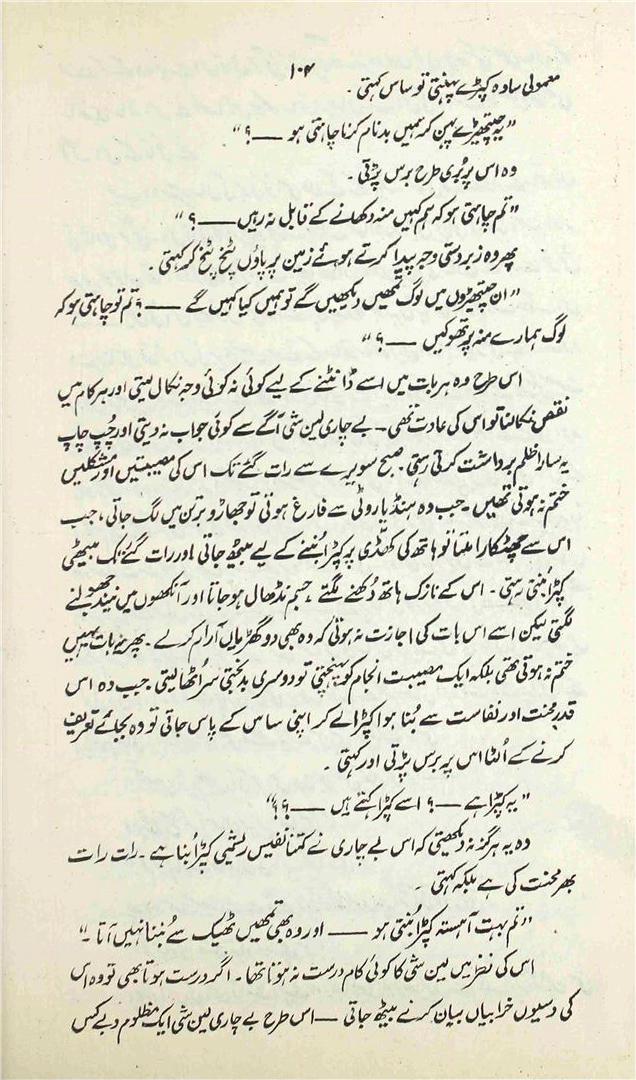 ۱۰۴
معمولی سادہ کپڑے پہنتی تو ساس کہتی ۔
"یہ چیتھڑے پہن کر ہمیں بدنام کرنا چاہتی ہو ——؟"
وہ اس پر بُری طرح برس پڑتی ۔
"تم چاہتی ہو کہ ہم کہیں منہ دکھانے کے قابل نہ رہیں ——؟"
پھر وہ زبردستی وجہ پیدا کرتے ہوئے زمین پر پاؤں پٹخ پٹخ کر کہتی ۔
"ان چیتھڑوں میں لوگ تمھیں دیکھیں گے تو ہمیں کیا کہیں گے ——؟ تم تو چاہتی ہو کہ
لوگ ہمارے منہ پر تھوکیں ——؟"
اس طرح وہ ہر بات میں اسے ڈانٹنے کے لیے کوئی نہ کوئی وجہ نکال لیتی اور ہر کام میں
نقص نکالنا تو اس کی عادت تھی ۔ بے چاری لین شی آگے سے کوئی جواب نہ دیتی اور چُپ چاپ
یہ سارا ظلم برداشت کرتی رہتی ۔ صبح سویرے سے رات گئے تک اس کی مصیبتیں اور مشکلیں
ختم نہ ہوتی تھیں ۔ جب وہ ہنڈیا روٹی سے فارغ ہوتی تو جھاڑو برتن میں لگ جاتی ، جب
اس سے چھٹکارا ملتا تو ہاتھ کی کھڈی پر کپڑا بُننے کے لیے بیٹھ جاتی اور رات گئے تک بیٹھی
کپڑا بُنتی رہتی ۔ اس کے نازک ہاتھ دُکھنے لگتے ، جسم نڈھال ہو جاتا اور آنکھوں میں نیند جھولنے
لگتی لیکن اسے اس بات کی اجازت نہ ہوتی کہ وہ بھی دو گھڑیاں آرام کر لے ۔ پھر یہ بات یہیں
ختم نہ ہوتی تھی بلکہ ایک مصیبت انجام کو پہنچتی تو دوسری بدبختی سر اٹھا لیتی ۔ جب وہ اس
قدر محنت اور نفاست سے بُنا ہوا کپڑا لے کر اپنی ساس کے پاس جاتی تو وہ بجائے تعریف
کرنے کے اُلٹا اس پر برس پڑتی اور کہتی ۔
"یہ کپڑا ہے ——؟ اسے کپڑا کہتے ہیں ——؟؟"
وہ یہ ہرگز نہ دیکھتی کہ اس بے چاری نے کتنا نفیس ریشمی کپڑا بُنا ہے ۔ رات رات
بھر محنت کی ہے بلکہ کہتی ۔
"تم بہت آہستہ کپڑا بُنتی ہو —— اور وہ بھی تمھیں ٹھیک سے بُننا نہیں آتا ۔"
اس کی نظر میں لین شی کا کوئی کام درست نہ ہوتا تھا ۔ اگر درست ہوتا بھی تو وہ اس
کی دسیوں خرابیاں بیان کرنے بیٹھ جاتی —— اس طرح بے چاری لین شی ایک مظلوم و بے کس